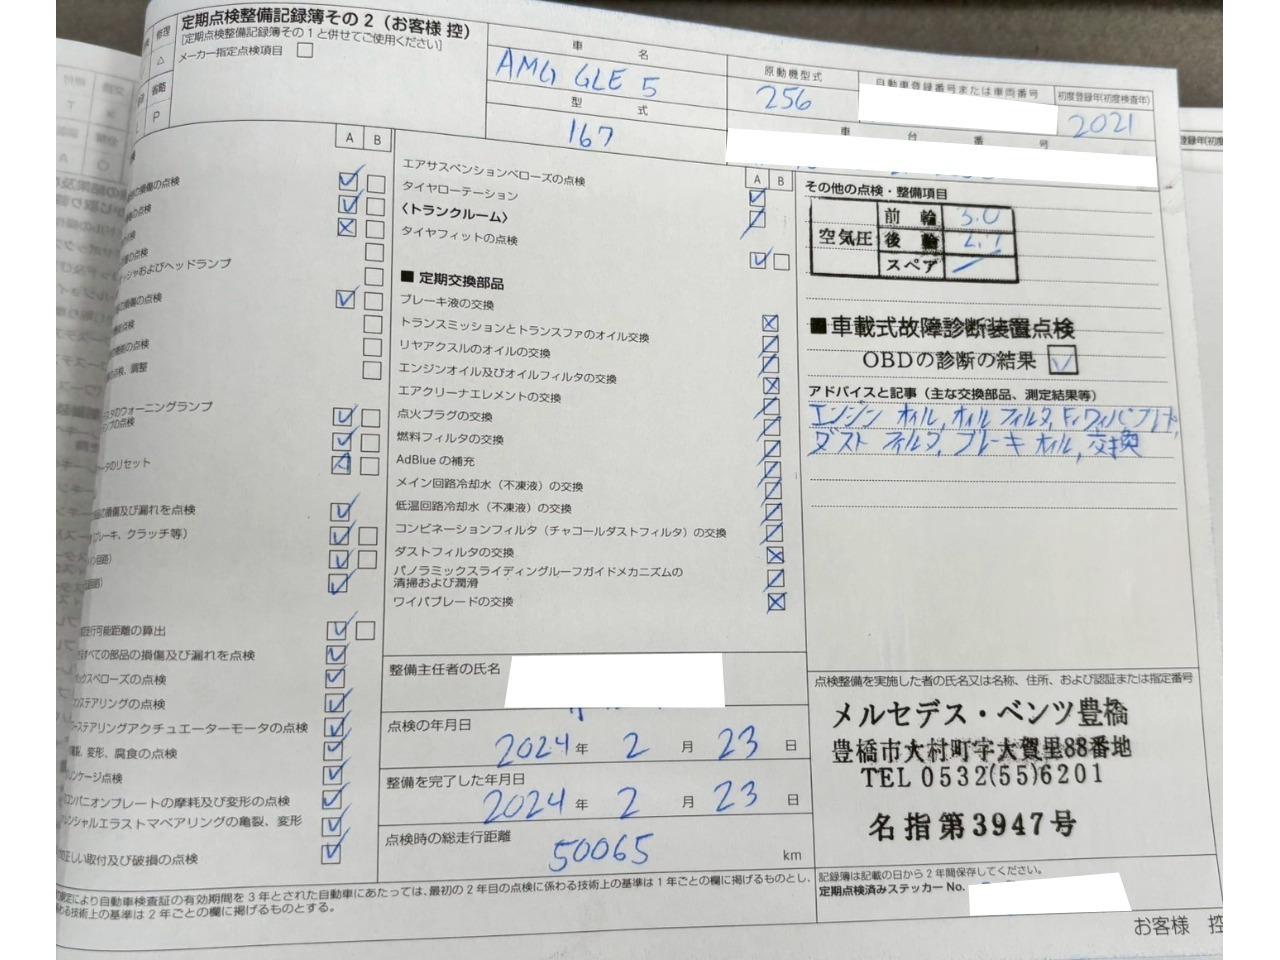 定期点検整備記録簿その2(お客様 控)
[定期点検整備記録簿その1と併せてご使用ください]
メーカー指定点検項目
修理
△
省略
P
車名
AMG GLE 5
型式
167
原動機型式
256
自動車登録番号または車両番号
初度登録年(初度検査年)
2021
車台番号
A B
損傷の点検
点検
ヘッドランプ
損傷の点検
の点検、調整
ウォーニングランプ
の点検
のリセット
損傷及び漏れを点検
ブレーキ、クラッチ等)
走行可能距離の算出
すべての部品の損傷及び漏れを点検
ベローズの点検
ステアリングの点検
ステアリングアクチュエーターモータの点検
変形、腐食の点検
ンケージ点検
コンパニオンプレートの摩耗及び変形の点検
ンシャルエラストマベアリングの亀裂、変形
正しい取付及び破損の点検
A B
エアサスペンションベローズの点検
タイヤローテーション
〈トランクルーム〉
タイヤフィットの点検
■ 定期交換部品
ブレーキ液の交換
トランスミッションとトランスファのオイル交換
リヤアクスルのオイルの交換
エンジンオイル及びオイルフィルタの交換
エアクリーナエレメントの交換
点火プラグの交換
燃料フィルタの交換
AdBlue の補充
メイン回路冷却水(不凍液)の交換
低温回路冷却水(不凍液)の交換
コンビネーションフィルタ(チャコールダストフィルタ)の交換
ダストフィルタの交換
パノラミックスライディングルーフガイドメカニズムの
清掃および潤滑
ワイパブレードの交換
整備主任者の氏名
点検の年月日
2024年 2月 23日
整備を完了した年月日
2024年 2月 23日
点検時の総走行距離
50065 km
その他の点検・整備項目
空気圧
前輪 3.0
後輪
スペア
■車載式故障診断装置点検
OBDの診断の結果
アドバイスと記事(主な交換部品、測定結果等)
エンジンオイル,オイルフィルタ,Frワイパブレード,
ダストフィルタ,ブレーキオイル,交換
点検整備を実施した者の氏名又は名称、住所、および認証または指定番号
メルセデス・ベンツ豊橋
豊橋市大村町字大賀里88番地
TEL 0532(55)6201
名指第3947号
記録簿は記載の日から2年間保存してください。
定期点検済みステッカー No.
規定により自動車検査証の有効期間を3年とされた自動車にあたっては、最初の2年目の点検に係わる技術上の基準は1年ごとの欄に掲げるものとし、
わる技術上の基準は2年ごとの欄に掲げるものとする。
お客様 控